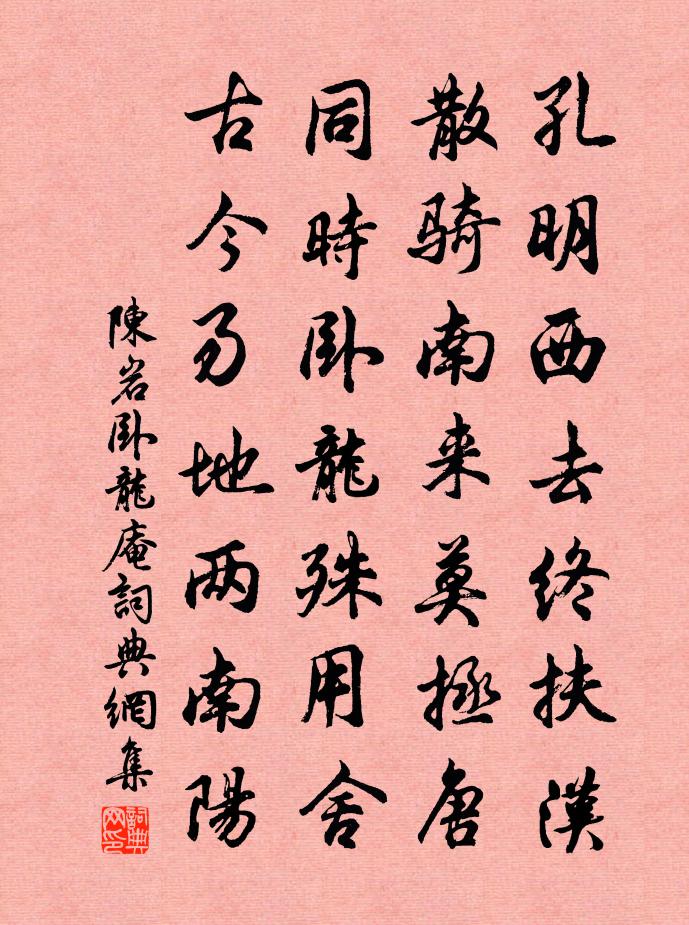 孔明西去终扶漢
散骑南来莫拯唐
同時卧龍殊用舍
古今易地两南陽
陳岩卧龍庵詞典網集
詞典网印